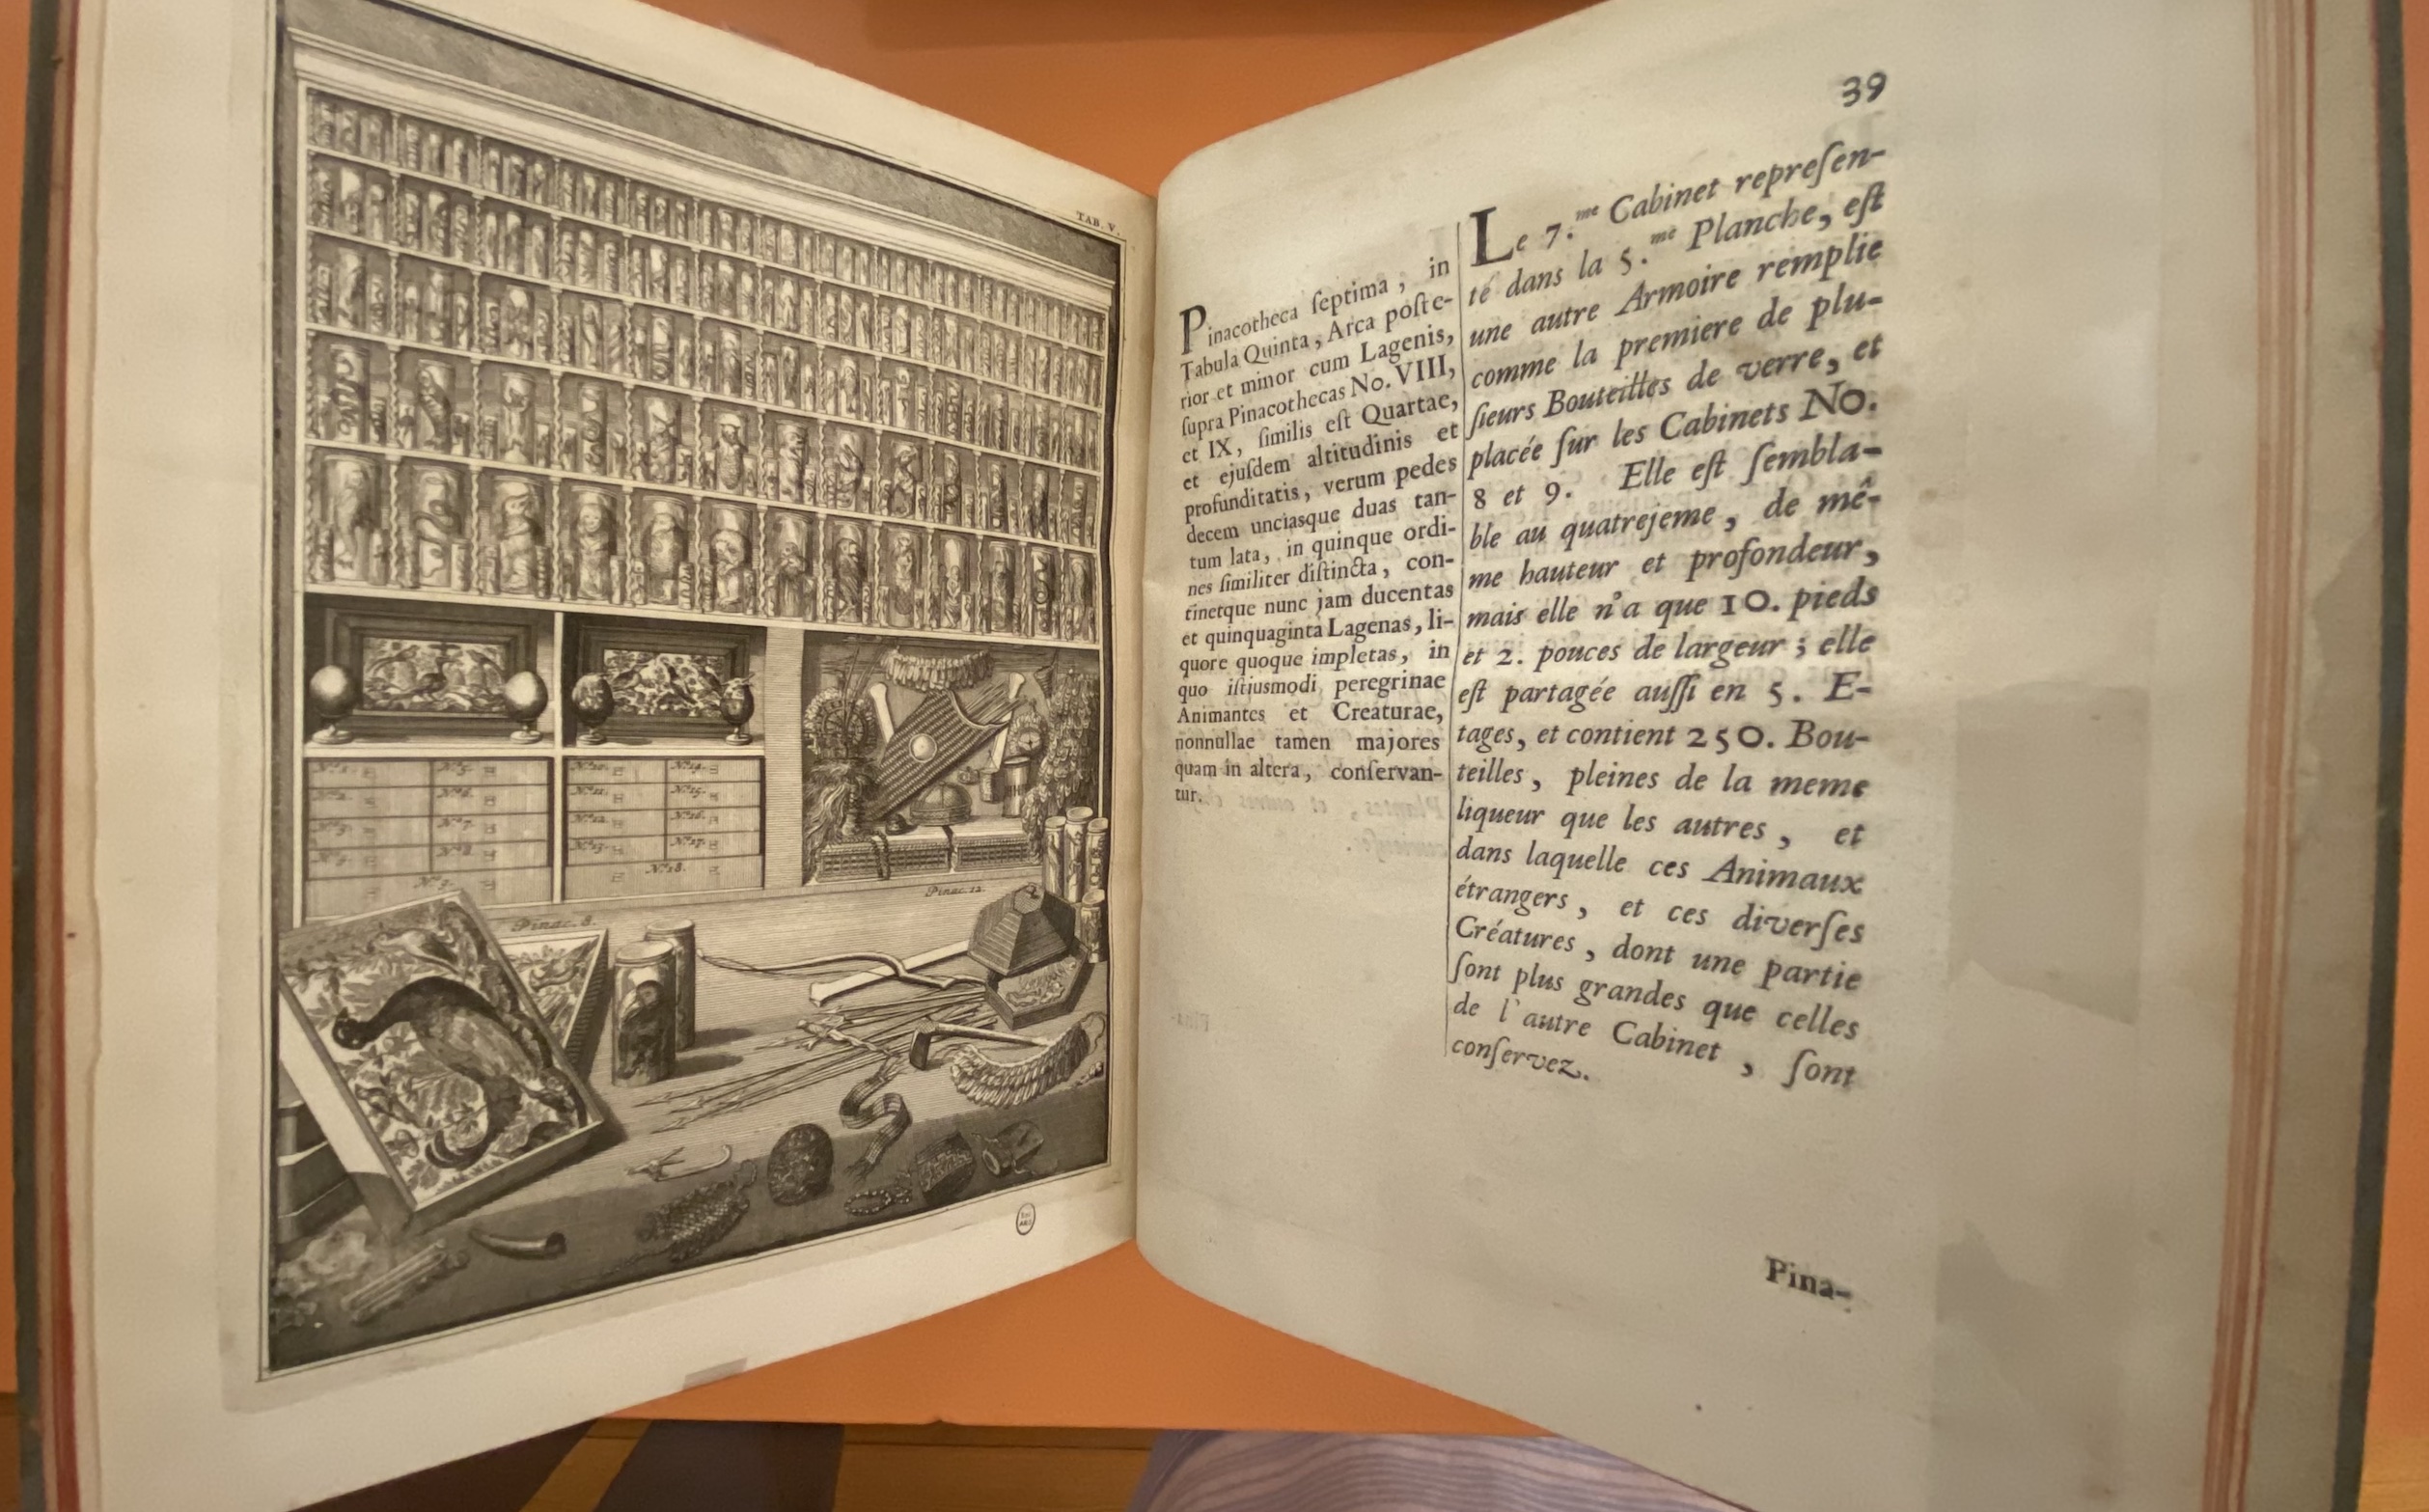 TAB. V.
No. 1.
No. 5.
No. 10.
No. 14.
No. 2.
No. 6.
No. 11.
No. 15.
No. 3.
No. 7.
No. 12.
No. 16.
No. 4.
No. 8.
No. 13.
No. 17.
No. 9.
No. 18.
Pinac. 8.
Pinac. 12.
39
Pinacotheca ſeptima, in
Tabula Quinta, Arca poſte-
rior et minor cum Lagenis,
ſupra Pinacothecas No. VIII,
et IX, ſimilis eſt Quartae,
et ejuſdem altitudinis et
profunditatis, verum pedes
decem unciasque duas tan-
tum lata, in quinque ordi-
nes ſimiliter diſtincta, con-
tinetque nunc jam ducentas
et quinquaginta Lagenas, li-
quore quoque impletas, in
quo iſtiusmodi peregrinae
Animantes et Creaturae,
nonnullae tamen majores
quam in altera, conſervan-
tur.
Le 7.me Cabinet repreſen-
té dans la 5.me Planche, eſt
une autre Armoire remplie
comme la premiere de plu-
ſieurs Bouteilles de verre, et
placée ſur les Cabinets No.
8 et 9. Elle eſt ſembla-
ble au quatrejeme, de mê-
me hauteur et profondeur,
mais elle n'a que 10. pieds
et 2. pouces de largeur; elle
eſt partagée auſſi en 5. E-
tages, et contient 250. Bou-
teilles, pleines de la meme
liqueur que les autres, et
dans laquelle ces Animaux
étrangers, et ces diverſes
Créatures, dont une partie
ſont plus grandes que celles
de l'autre Cabinet, ſont
conſervez.
Pina-